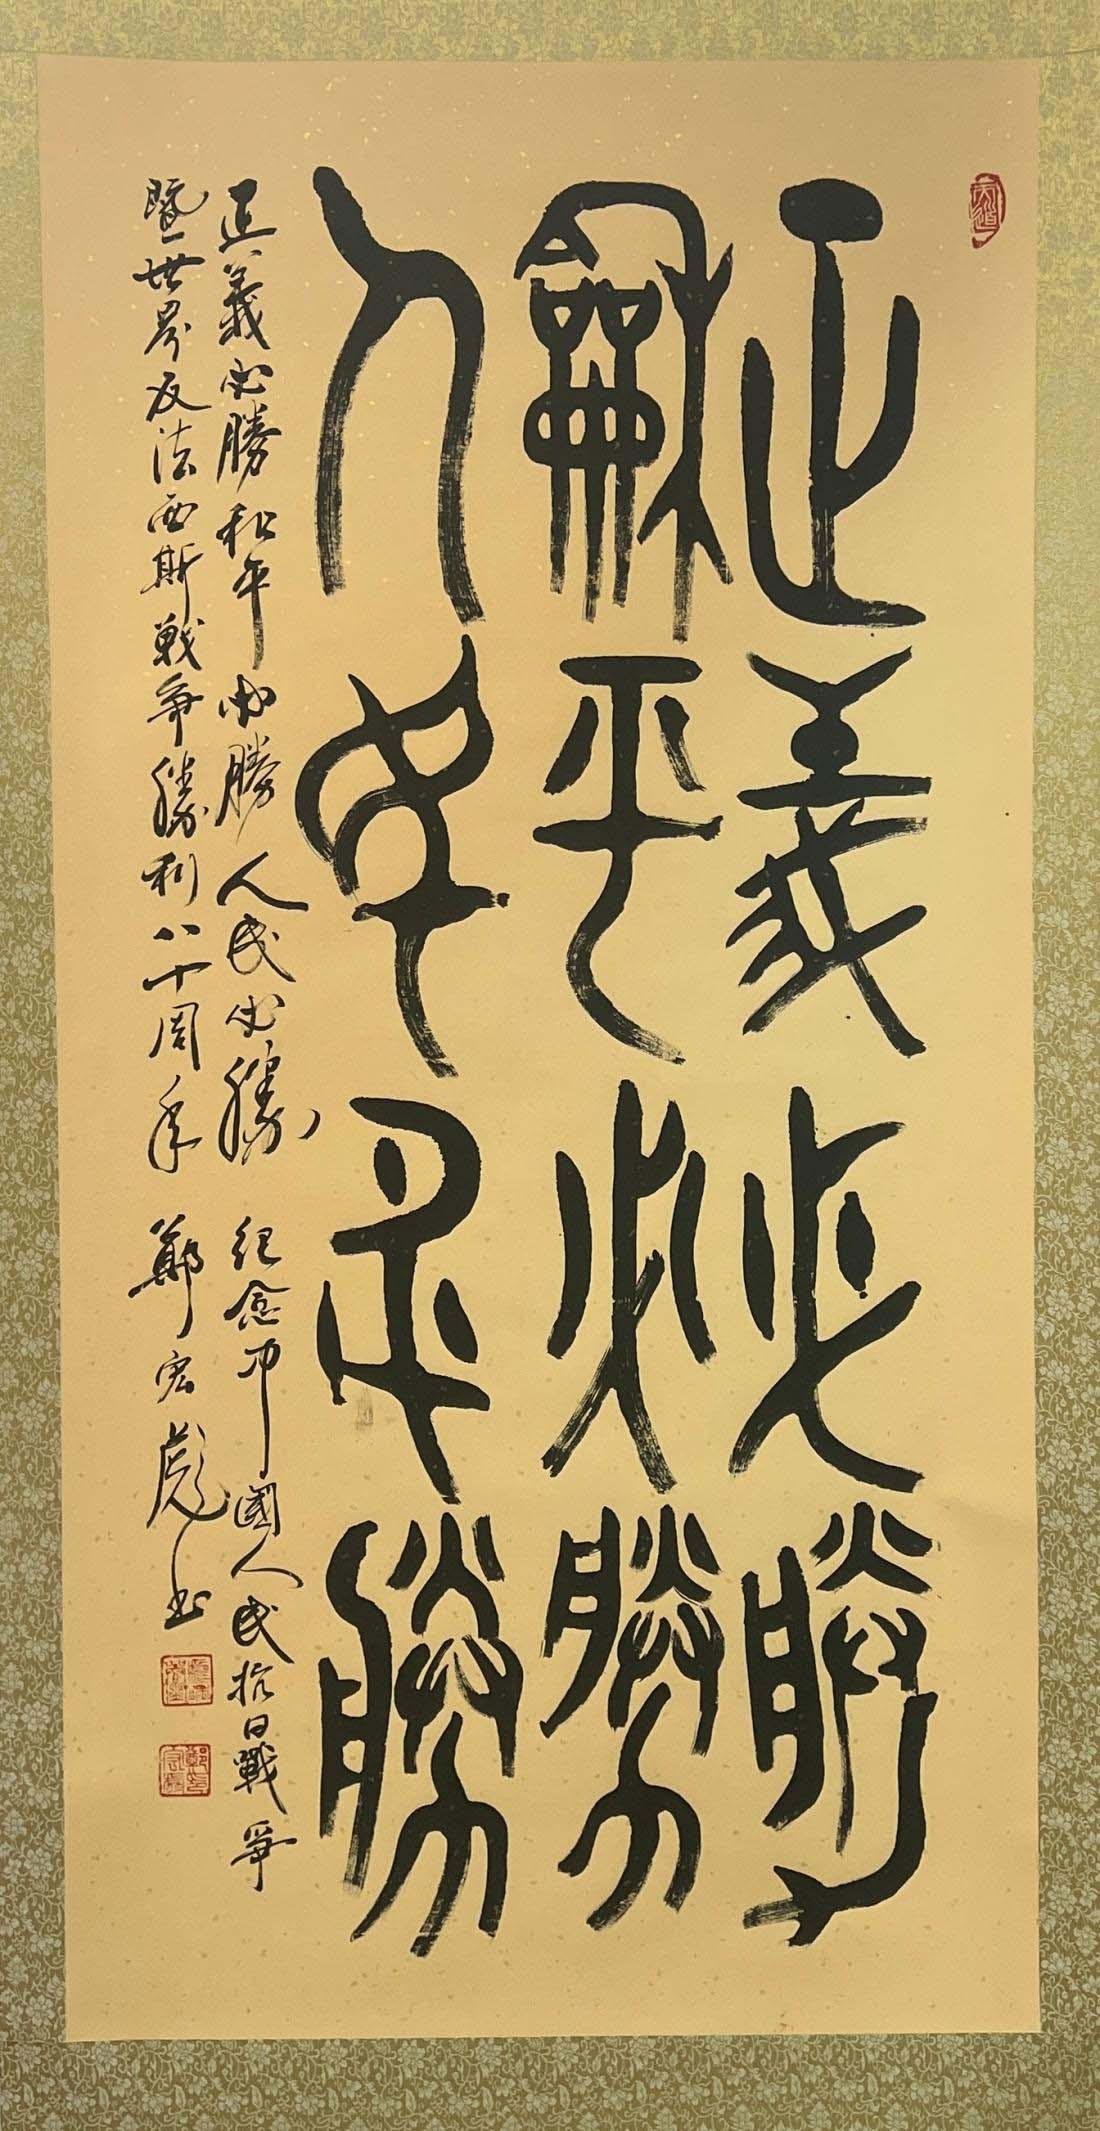 正義必勝
龢平必勝
人民必勝
正義必勝和平必勝人民必勝 紀念中國人民抗日戰爭
暨世界反法西斯戰爭勝利八十周年 鄭宏彪书